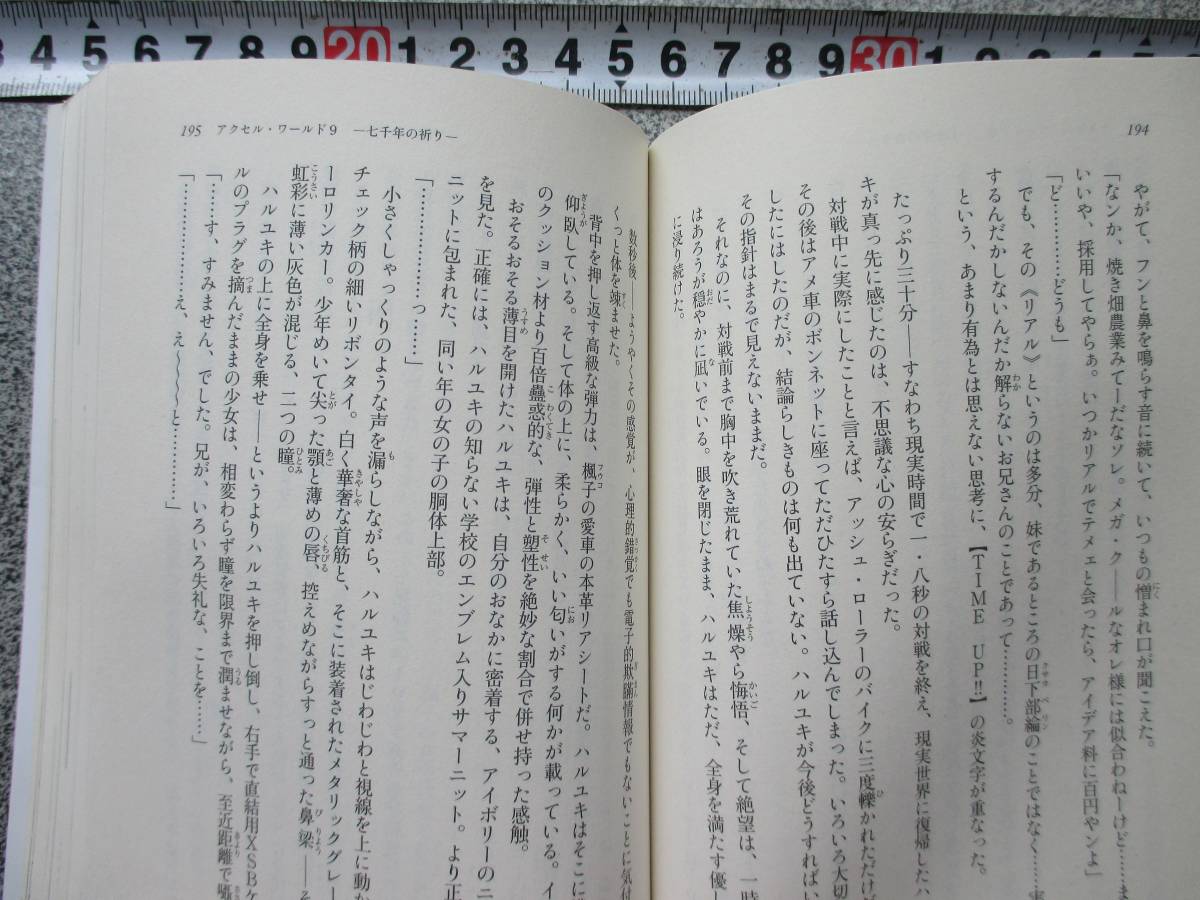 3 4 5 6 7 8 9 20 1 2 3 4 5 6 7 8 9 30 1 2 3 4 5
194
やがて、フンと鼻を鳴らす音に続いて、いつもの憎まれ口が聞こえた。
「なンか、焼き畑農業みてーだなソレ。メガ・ク――ルなオレ様には似合わねーけど……ま
いいや、採用してやらぁ。いつかリアルでテメェと会ったら、アイデア料に百円やンよ」
「ど…………どうも」
でも、その《リアル》というのは多分、妹であるところの日下部綸のことではなく……実
するんだかしないんだか解らないお兄さんのことであって…………。
という、あまり有為とは思えない思考に、【TIME UP!!】の炎文字が重なった。
たっぷり三十分――すなわち現実時間で一・八秒の対戦を終え、現実世界に復帰したハ
キが真っ先に感じたのは、不思議な心の安らぎだった。
対戦中に実際にしたことと言えば、アッシュ・ローラーのバイクに三度轢かれただけだ
その後はアメ車のボンネットに座ってただひたすら話し込んでしまった。いろいろ大切
したにはしたのだが、結論らしきものは何も出ていない。ハルユキが今後どうすればい
その指針はまるで見えないままだ。
それなのに、対戦前まで胸中を吹き荒れていた焦燥やら悔悟、そして絶望は、一時
はあろうが穏やかに凪いでいる。眼を閉じたまま、ハルユキはただ、全身を満たす優
に浸り続けた。
195 アクセル・ワールド9 ―七千年の祈り―
数秒後――ようやくその感覚が、心理的錯覚でも電子的欺瞞情報でもないことに気付
くっと体を竦ませた。
背中を押し返す高級な弾力は、楓子の愛車の本革リアシートだ。ハルユキはそこに
仰臥している。そして体の上に、柔らかく、いい匂いがする何かが載っている。イ
のクッション材より百倍蠱惑的な、弾性と塑性を絶妙な割合で併せ持った感触。
おそるおそる薄目を開けたハルユキは、自分のおなかに密着する、アイボリーのニ
を見た。正確には、ハルユキの知らない学校のエンブレム入りサマーニット。より正
ニットに包まれた、同い年の女の子の胴体上部。
「…………っ……」
小さくしゃっくりのような声を漏らしながら、ハルユキはじわじわと視線を上に動か
チェック柄の細いリボンタイ。白く華奢な首筋と、そこに装着されたメタリックグレー
ーロリンカー。少年めいて尖った顎と薄めの唇、控えめながらすっと通った鼻梁――そ
虹彩に薄い灰色が混じる、二つの瞳。
ハルユキの上に全身を乗せ――というよりハルユキを押し倒し、右手で直結用XSBケ
ルのプラグを摘んだままの少女は、相変わらず瞳を限界まで潤ませながら、至近距離で囁
「……す、すみません、でした。兄が、いろいろ失礼な、ことを……」
「……………え、え～～～と…………」